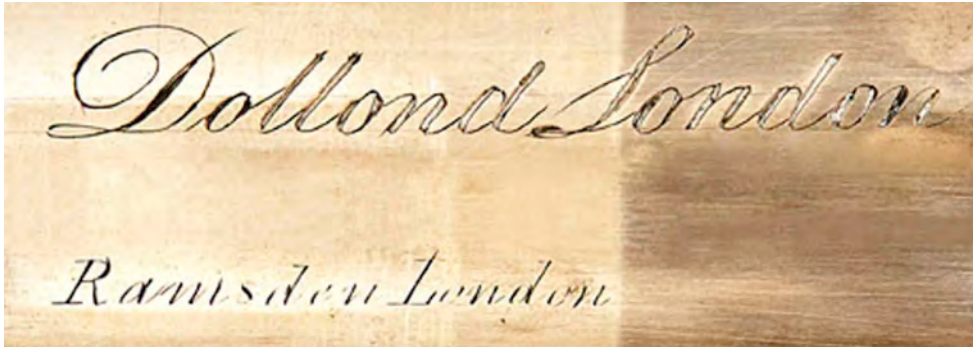 Dollond London
Ramsden London